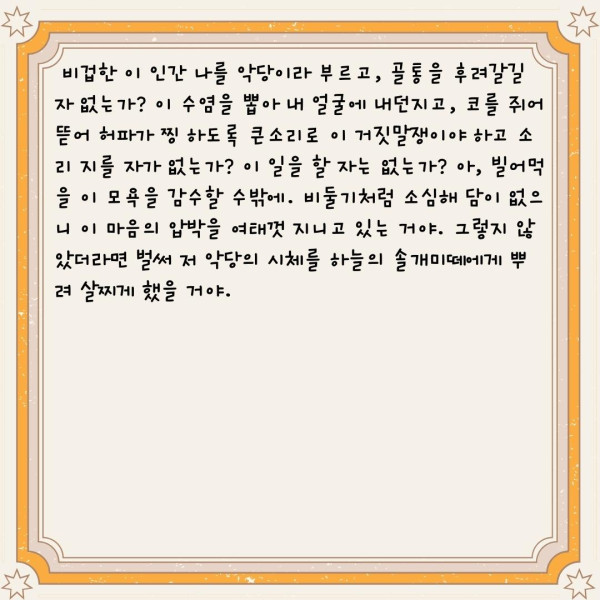 비겁한 이 인간 나를 악당이라 부르고, 골통을 후려갈길
자 없는가? 이 수염을 뽑아 내 얼굴에 내던지고, 코를 쥐어
뜯어 허파가 찡 하도록 큰소리로 이 거짓말쟁이야 하고 소
리 지를 자가 없는가? 이 일을 할 자는 없는가? 아, 빌어먹
을 이 모욕을 감수할 수밖에. 비둘기처럼 소심해 담이 없으
니 이 마음의 압박을 여태껏 지니고 있는 거야. 그렇지 않
았더라면 벌써 저 악당의 시체를 하늘의 솔개미떼에게 뿌
려 살찌게 했을 거야.